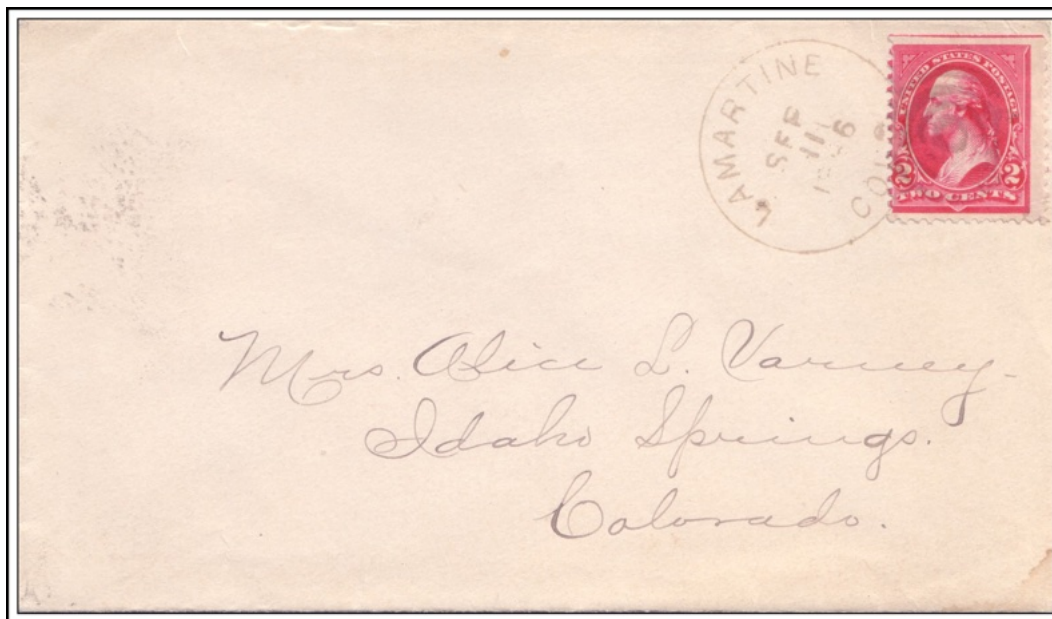 LAMARTINE
SEP
11
COL
UNITED STATES POSTAGE
2 2
TWO CENTS
Mrs. Alice L. Varney.
Idaho Springs.
Colorado.